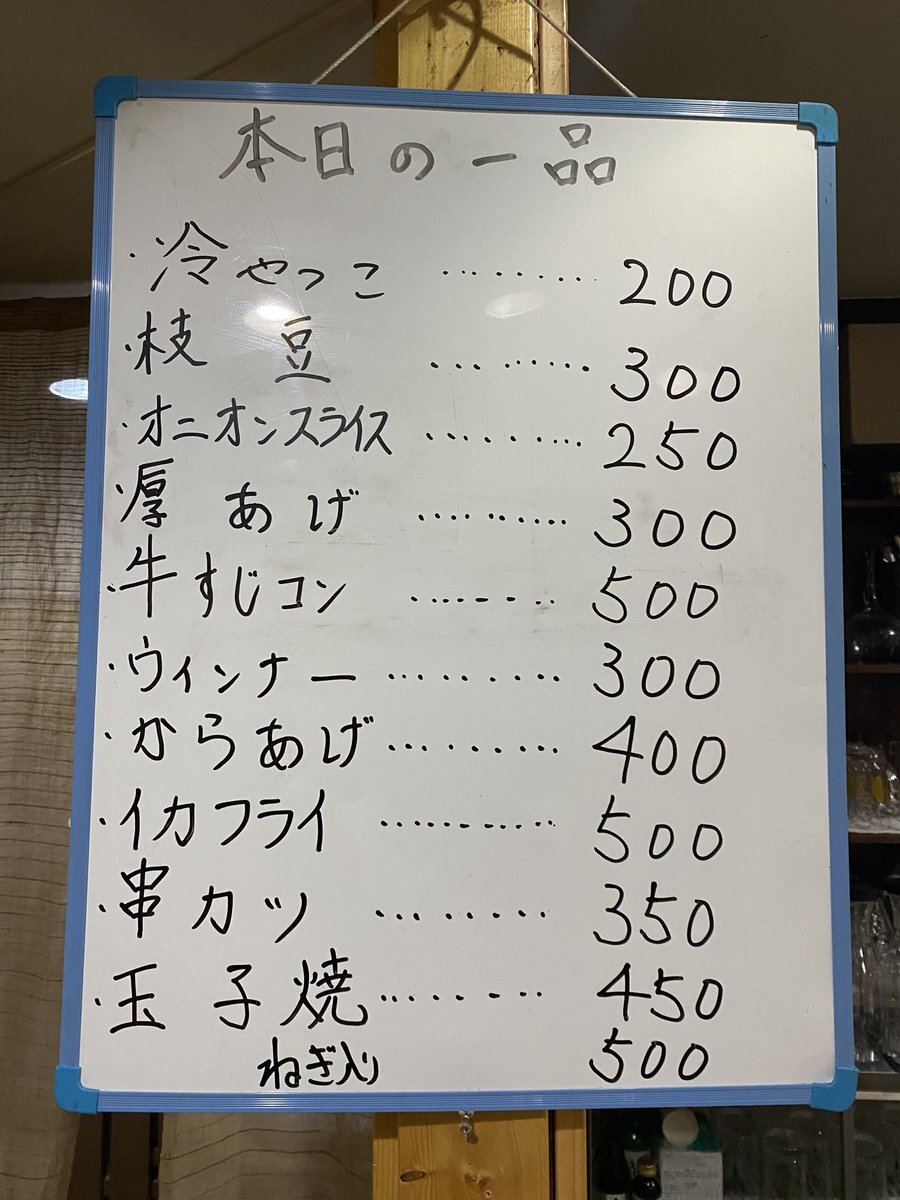 本日の一品
・冷やっこ ……… 200
・枝豆 ……… 300
・オニオンスライス ……… 250
・厚あげ ……… 300
・牛すじコン ……… 500
・ウィンナー ……… 300
・からあげ ……… 400
・イカフライ ……… 500
・串カツ ……… 350
・玉子焼 ……… 450
ねぎ入り 500